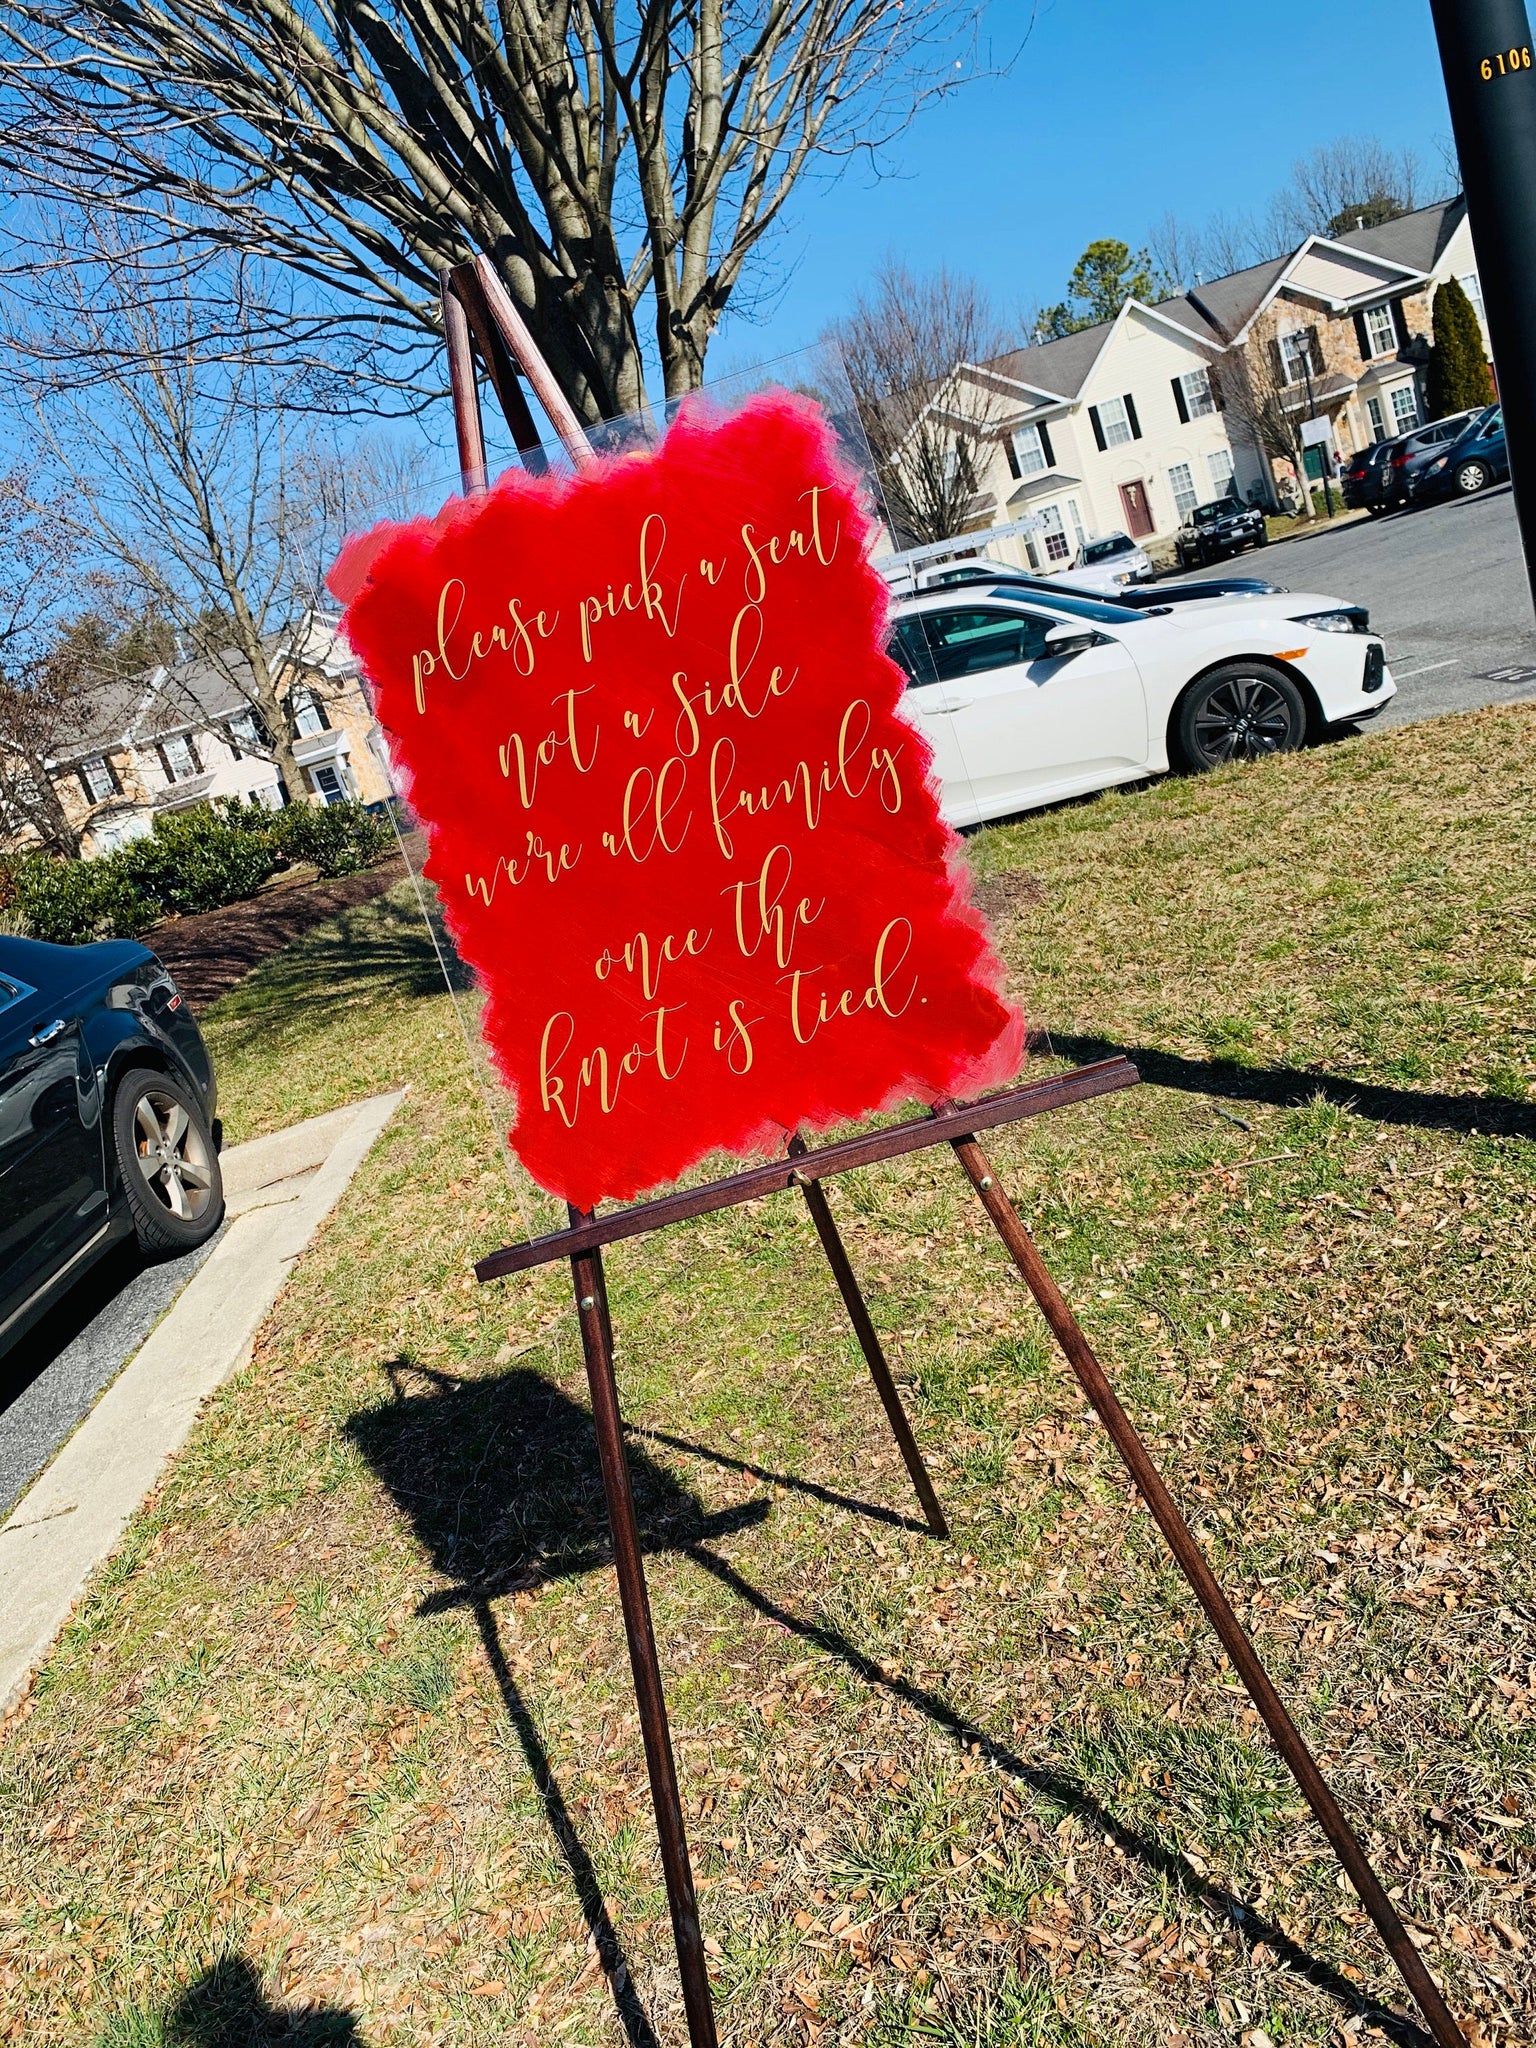 6106
please pick a seat
not a side
we're all family
once the
knot is tied.